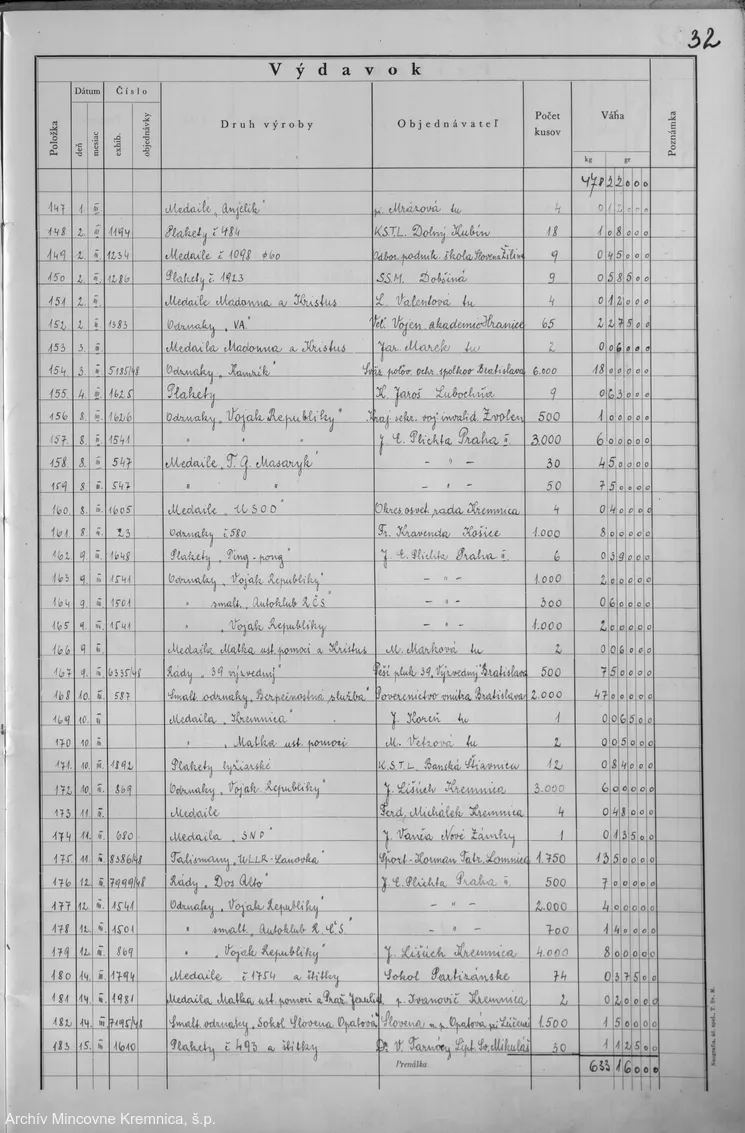 32
Výdavok
Položka Dátum Číslo Druh výroby Objednávateľ Počet kusov Váha Poznámka
deň mesiac exhib. objednávky kg gr
478 22000
147 1. III. Medaile „Anjelik" p. Mrázová tu 4 012000
148 2. III. 1194 Plakety č 484 K.S.T.L. Dolný Kubín 18 108000
149 2. III. 1234 Medaile č 1098 ø60 Odbor. podnik. škola Slovena Žilina 9 045000
150 2. III. 1286 Plakety č 1923 S.S.M. Dobšiná 9 058500
151 2. III. Medaile Madonna a Kristus L. Valentová tu 4 012000
152 2. III. 1383 Odznaky „VA." Vel. Vojen. akademie Hranice 65 227500
153 3. III. Medaila Madonna a Kristus Jar. Marek tu 2 006000
154 3. III. 5185/48 Odznaky „Kamzík" Sväz poľov. ochr. spolkov Bratislava 6.000 180000
155. 4. III. 1625 Plakety K. Jaroš Ľubochňa 9 063000
156 8. III. 1626 Odznaky „Vojak Republiky" Kraj. sekr. voj. invalid. Zvolen 500 10000
157. 8. III. 1541 " " " J. E. Plichta Praha II. 3.000 60000
158 8. III. 547 Medaile „T. G. Masaryk" – " – 30 450000
159 8 III. 547 " " – " – 50 750000
160. 8. III. 1605 Medaile „USOO" Okres. osvet. rada Kremnica 4 040000
161 8. III. 23 Odznaky č 580 Fr. Kravenda Košice 1.000 80000
162 9. III. 1648 Plakety „Ping-pong" J. E. Plichta Praha II. 6 039000
163 9. III. 1541 Odznaky „Vojak Republiky" – " – 1.000 20000
164 9. III. 1501 " smalt. „Autoklub RČS" – " – 300 060000
165 9. III. 1541 " „Vojak Republiky – " – 1.000 20000
166 9 III. Medaila Matka ust. pomoci a Kristus M. Marková tu 2 006000
167 9. III. 6335/48 Rády „39 výzvedný" Peší pluk 39. „Výzvedný" Bratislava 500 750000
168 10. III. 587 Smalt. odznaky „Bezpečnostná služba" Poverenictvo vnútra Bratislava 2.000 470000
169 10. III. Medaila „Kremnica" J. Koreň tu 1 006500
170 10 III. " „Matka ust. pomoci M. Vetzová tu 2 005000
171. 10. III. 1892 Plakety lyžiarské K.S.T.L. Banská Štiavnica 12 084000
172 10. III. 869 Odznaky „Vojak Republiky" J. Lišúch Kremnica 3.000 60000
173 11. III. Medaile Ferd. Michálek Kremnica 4 048000
174 11. III. 680 Medaila „SNP" J. Vanča Nové Zámky 1 013500
175. 11 III. 8386/48 Talizmany „ULLR-Lanovka" Šport-Horman Tatr. Lomnica 1.750 1350000
176 12. III. 7999/48 Rády „Dos Alto" J. E. Plichta Praha II. 500 70000
177 12. III. 1541 Odznaky „Vojak Republiky" – " – 2.000 40000
178 12. III. 1501 " smalt. „Autoklub R.Č.S." – " – 700 140000
179 12. III. 869 " „Vojak Republiky" J. Lišúch Kremnica 4.000 80000
180 14. III. 1794 Medaile č 1754 a štítky Sokol Partizánske 74 037500
181 14. III. 1981 Medaila Matka ust. pomoci a Praž. Jezulát. p. Ivanovič Kremnica 2 020000
182 14. III. 7195/48 Smalt. odznaky „Sokol Slovena Opatová" Slovena n. p. Opatová pri Lučenci 1.500 150000
183 15. III. 1610 Plakety č 493 a štítky Dr. V. Tarnóczy Lipt. Sv. Mikuláš 30 112500
Prenáška 633 16000
Archív Mincovne Kremnica, š.p.